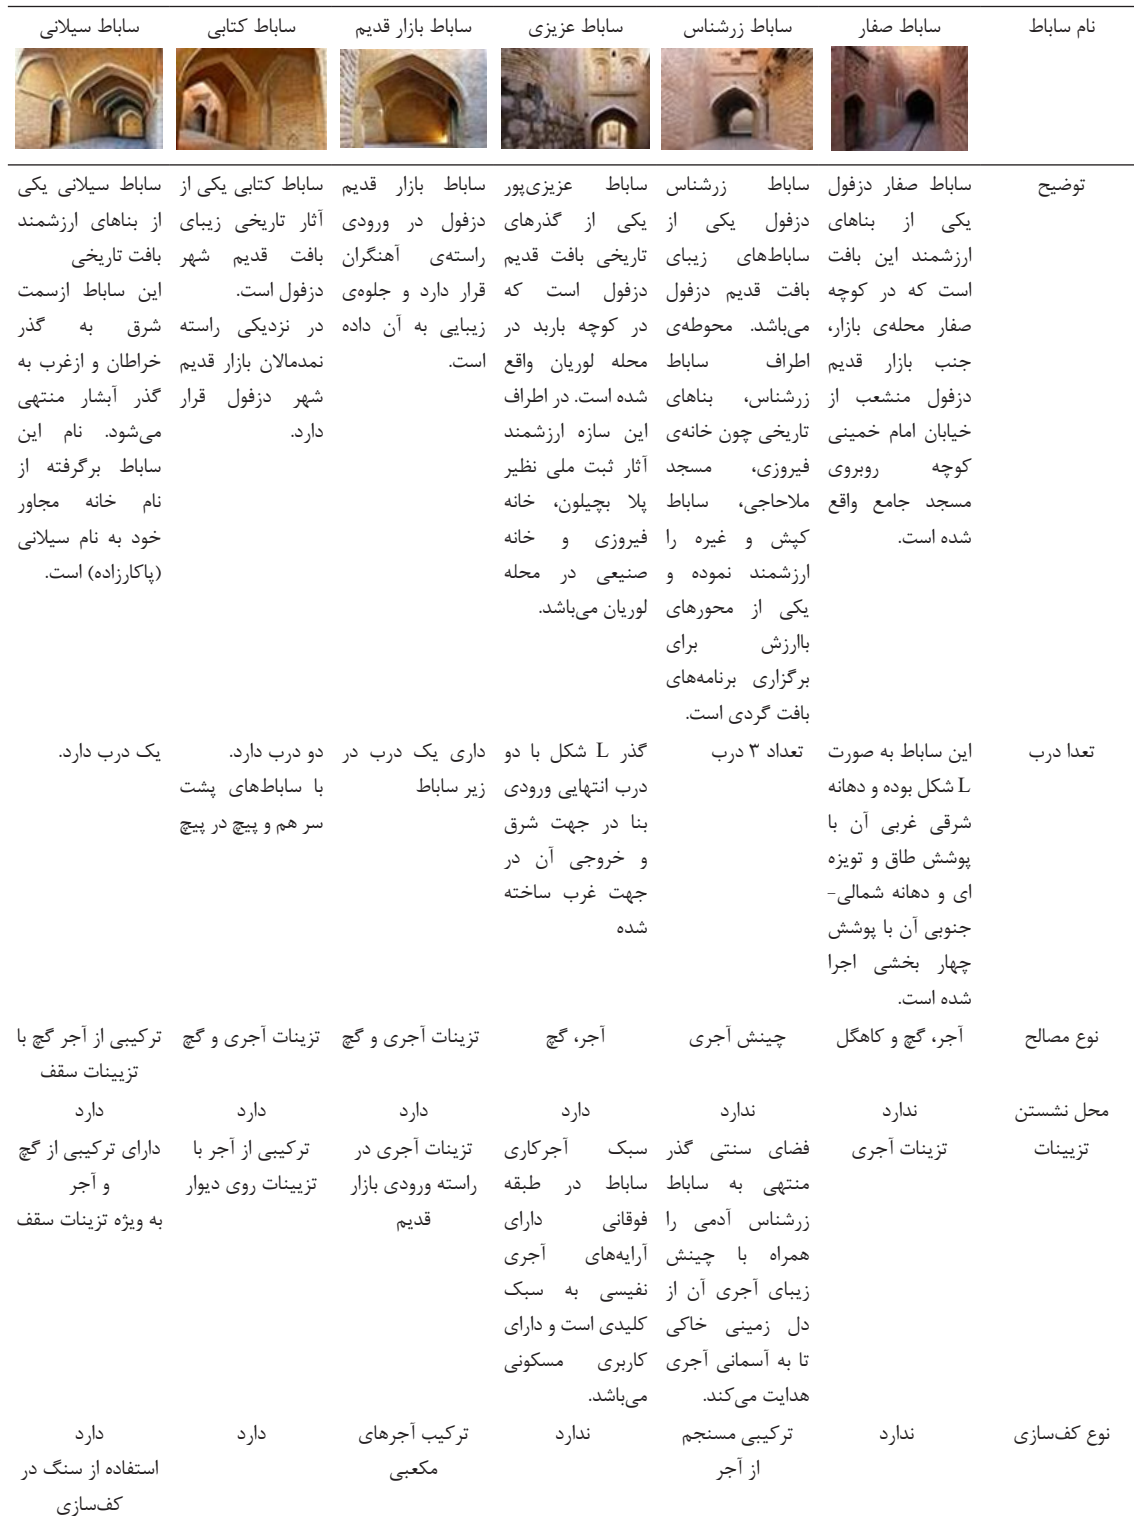 نام ساباط
ساباط صفار
ساباط زرشناس
ساباط عزیزی
ساباط بازار قدیم
ساباط کتابی
ساباط سیلانی
توضیح
ساباط صفار دزفول
یکی از بناهای
ارزشمند این بافت
است که در کوچه
صفار محله‌ی بازار،
جنب بازار قدیم
دزفول منشعب از
خیابان امام خمینی
کوچه روبروی
مسجد جامع واقع
شده است.
ساباط زرشناس
دزفول یکی از
ساباط‌های زیبای
بافت قدیم دزفول
می‌باشد. محوطه‌ی
اطراف ساباط
زرشناس، بناهای
تاریخی چون خانه‌ی
فیروزی، مسجد
ملاحاجی، ساباط
کپش و غیره را
ارزشمند نموده و
یکی از محورهای
باارزش برای
برگزاری برنامه‌های
بافت گردی است.
ساباط عزیزی‌پور
یکی از گذرهای
تاریخی بافت قدیم
دزفول است که
در کوچه باربد در
محله لوریان واقع
شده است. در اطراف
این سازه ارزشمند
آثار ثبت ملی نظیر
پلا بچیلون، خانه
فیروزی و خانه
صنیعی در محله
لوریان می‌باشد.
ساباط بازار قدیم
دزفول در ورودی
راسته‌ی آهنگران
قرار دارد و جلوه‌ی
زیبایی به آن داده
است.
ساباط کتابی یکی از
آثار تاریخی زیبای
بافت قدیم شهر
دزفول است.
در نزدیکی راسته
نمدمالان بازار قدیم
شهر دزفول قرار
دارد.
ساباط سیلانی یکی
از بناهای ارزشمند
بافت تاریخی
این ساباط ازسمت
شرق به گذر
خراطان و ازغرب به
گذر آبشار منتهی
می‌شود. نام این
ساباط برگرفته از
نام خانه مجاور
خود به نام سیلانی
(پاکارزاده) است.
تعدا درب
این ساباط به صورت
L شکل بوده و دهانه
شرقی غربی آن با
پوشش طاق و تویزه
ای و دهانه شمالی-
جنوبی آن با پوشش
چهار بخشی اجرا
شده است.
تعداد ۳ درب
گذر L شکل با دو
درب انتهایی ورودی
بنا در جهت شرق
و خروجی آن در
جهت غرب ساخته
شده
داری یک درب در
زیر ساباط
دو درب دارد.
با ساباط‌های پشت
سر هم و پیچ در پیچ
یک درب دارد.
نوع مصالح
آجر، گچ و کاهگل
چینش آجری
آجر، گچ
تزینات آجری و گچ
تزینات آجری و گچ
ترکیبی از آجر گچ با
تزیینات سقف
محل نشستن
ندارد
ندارد
دارد
دارد
دارد
دارد
تزیینات
تزینات آجری
فضای سنتی گذر
منتهی به ساباط
زرشناس آدمی را
همراه با چینش
زیبای آجری آن از
دل زمینی خاکی
تا به آسمانی آجری
هدایت می‌کند.
سبک آجرکاری
ساباط در طبقه
فوقانی دارای
آرایه‌های آجری
نفیسی به سبک
کلیدی است و دارای
کاربری مسکونی
می‌باشد.
تزینات آجری در
راسته ورودی بازار
قدیم
ترکیبی از آجر با
تزیینات روی دیوار
دارای ترکیبی از گچ
و آجر
به ویژه تزینات سقف
نوع کف‌سازی
ندارد
ترکیبی مسنجم
از آجر
ندارد
ترکیب آجرهای
مکعبی
دارد
دارد
استفاده از سنگ در
کف‌سازی